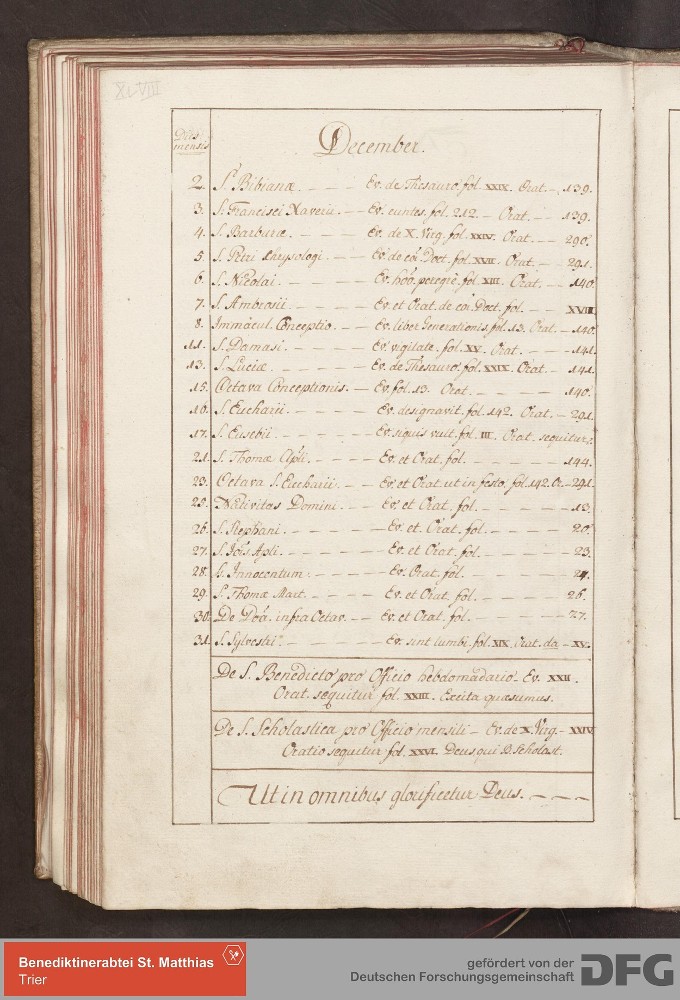 XLVIII
Dies
mensis
December.
2. S. Bibianæ. – – – – Ev. de Thesauro. fol. XXIX. Orat. – 139.
3. S. Francisci Xaverii. – – Ev. euntes. fol. 212. – Orat. – – 139.
4. S. Barbaræ. – – – – Ev. de X. Virg. fol. XXIV. Orat. – – 290.
5. S. Petri Chrysologi. – – Ev. de cõi Doct. fol. XVII. Orat. – – 291.
6. S. Nicolai. – – – – Ev. hõo peregrè. fol. XIII. Orat. – – 140.
7. S. Ambrosii. – – – – Ev. et Orat. de cõi Doct. fol. – – XVIII
8. Immácul. Conceptio. – – Ev. liber Generationis. fol. 13. Orat. – 140.
11. S. Damasi. – – – – Ev. vigilate. fol. XV. Orat. – – – 141.
13. S. Luciæ. – – – – Ev. de Thesauro. fol. XXIX. Orat. – 141.
15. Octava Conceptionis. – Ev. fol. 13. Orat. – – – – 140.
16. S. Eucharii. – – – – Ev. designavit. fol. 142. Orat. – 291.
17. S. Eusebii. – – – – Ev. si quis vult. fol. III. Orat. sequitur.
21. S. Thomæ Apli. – – – Ev. et Orat. fol. – – – – – 144.
23. Octava S. Eucharii. – – Ev. et Orat. ut in festo. fol. 142. Or. – 291.
25. Nativitas Domini. – – Ev. et Orat. fol. – – – – – 13.
26. S. Stephani. – – – – Ev. et Orat. fol. – – – – 20.
27. S. Jõis Apli. – – – – Ev. et Orat. fol. – – – – 23.
28. S. Innocentum. – – – Ev. Orat. fol. – – – – 24.
29. S. Thomæ Mart. – – – Ev. et Orat. fol. – – – – 26.
30. De Dõa. infra Octav. – – Ev. et Orat. fol. – – – – 27.
31. S. Sylvestri. – – – – Ev. sint lumbi. fol. XIX. Orat. da – XV.
De S. Benedicto pro Officio hebdomadario. Ev. XXII.
Orat. sequitur fol. XXIII. Excita quæsumus.
De S. Scholastica pro Officio mensili – Ev. de X. Virg. – XXIV
Oratio sequitur fol. XXVI. Deus qui B. Scholast.
Ut in omnibus glorificetur Deus. – – – –
Benediktinerabtei St. Matthias
Trier
gefördert von der
Deutschen Forschungsgemeinschaft
DFG